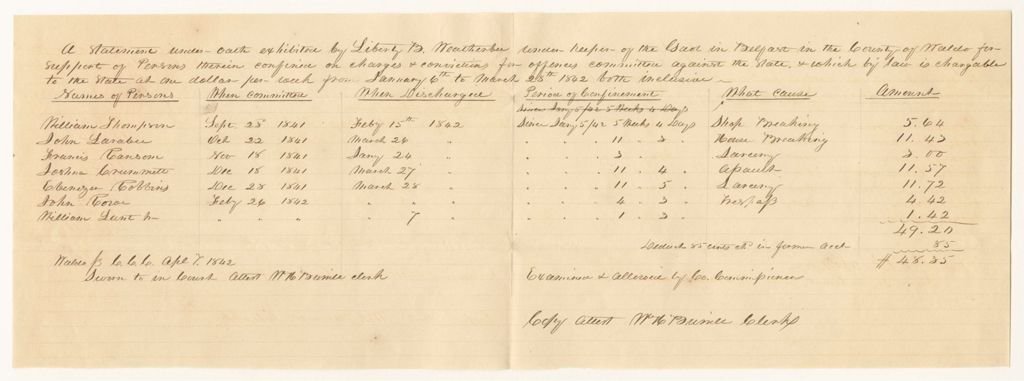 A Statement under oath exhibited by Liberty B. Weatherbee under keeper of the Gaol in Belfast in the County of Waldo for
support of Persons therein confined on charges & convictions for offences committed against the State, & which by law is chargable
to the State at one dollar per week from January 6th to March 28th 1842 both inclusive -
Names of Persons When Committed When Discharged Period of Confinement What Cause Amount
Since Jany 5/42 5 Weeks 4 Days
William Thompson Sept 28 1841 Feby 15th 1842 Since Jany 5/42 5 Weeks 4 Days Shop Breaking 5.64
John Larabee Oct 22 1841 March 26 " " " 11 " 3 " House Breaking 11.43
Francis Ransom Nov 18 1841 Jany 26 " " " 3 " Larceny 3.00
Joshua Crummett Dec 18 1841 March 27 " " " 11 " 4 " Assault 11.57
Ebenezer Robbins Dec 28 1841 March 28 " " " 11 " 5 " Larceny 11.72
John Rowe Feby 26 1842 " " " " " 4 " 3 " Trespass 4.42
William Lunt Jr " " " 7 " " " 1 " 3 " 1.42
49.20
Deduct 85 cents chd in former acct 85
$ 48.35
Waldo ss C.C.C. Apl 7 1842
Sworn to in Court Attest Clerk
Examined & allowed by Co. Commissioner
Copy Attest Clerk